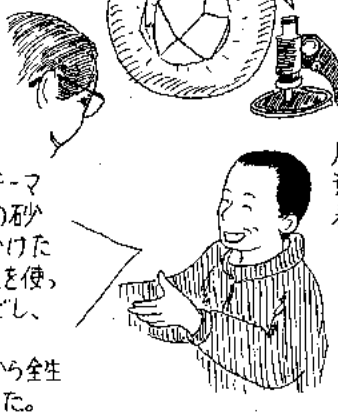 ーマ
の砂
かけた
を使っ
どし、
から全生
た。